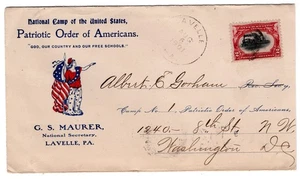 National Camp of the United States,
Patriotic Order of Americans.
"GOD, OUR COUNTRY AND OUR FREE SCHOOLS."
LAVELLE
Albert E. Gorham Rec. Secy.
Camp No. 1, Patriotic Order of Americans
1240 - 8th St, N W
Washington D C
G. S. MAURER,
National Secretary,
LAVELLE, PA.